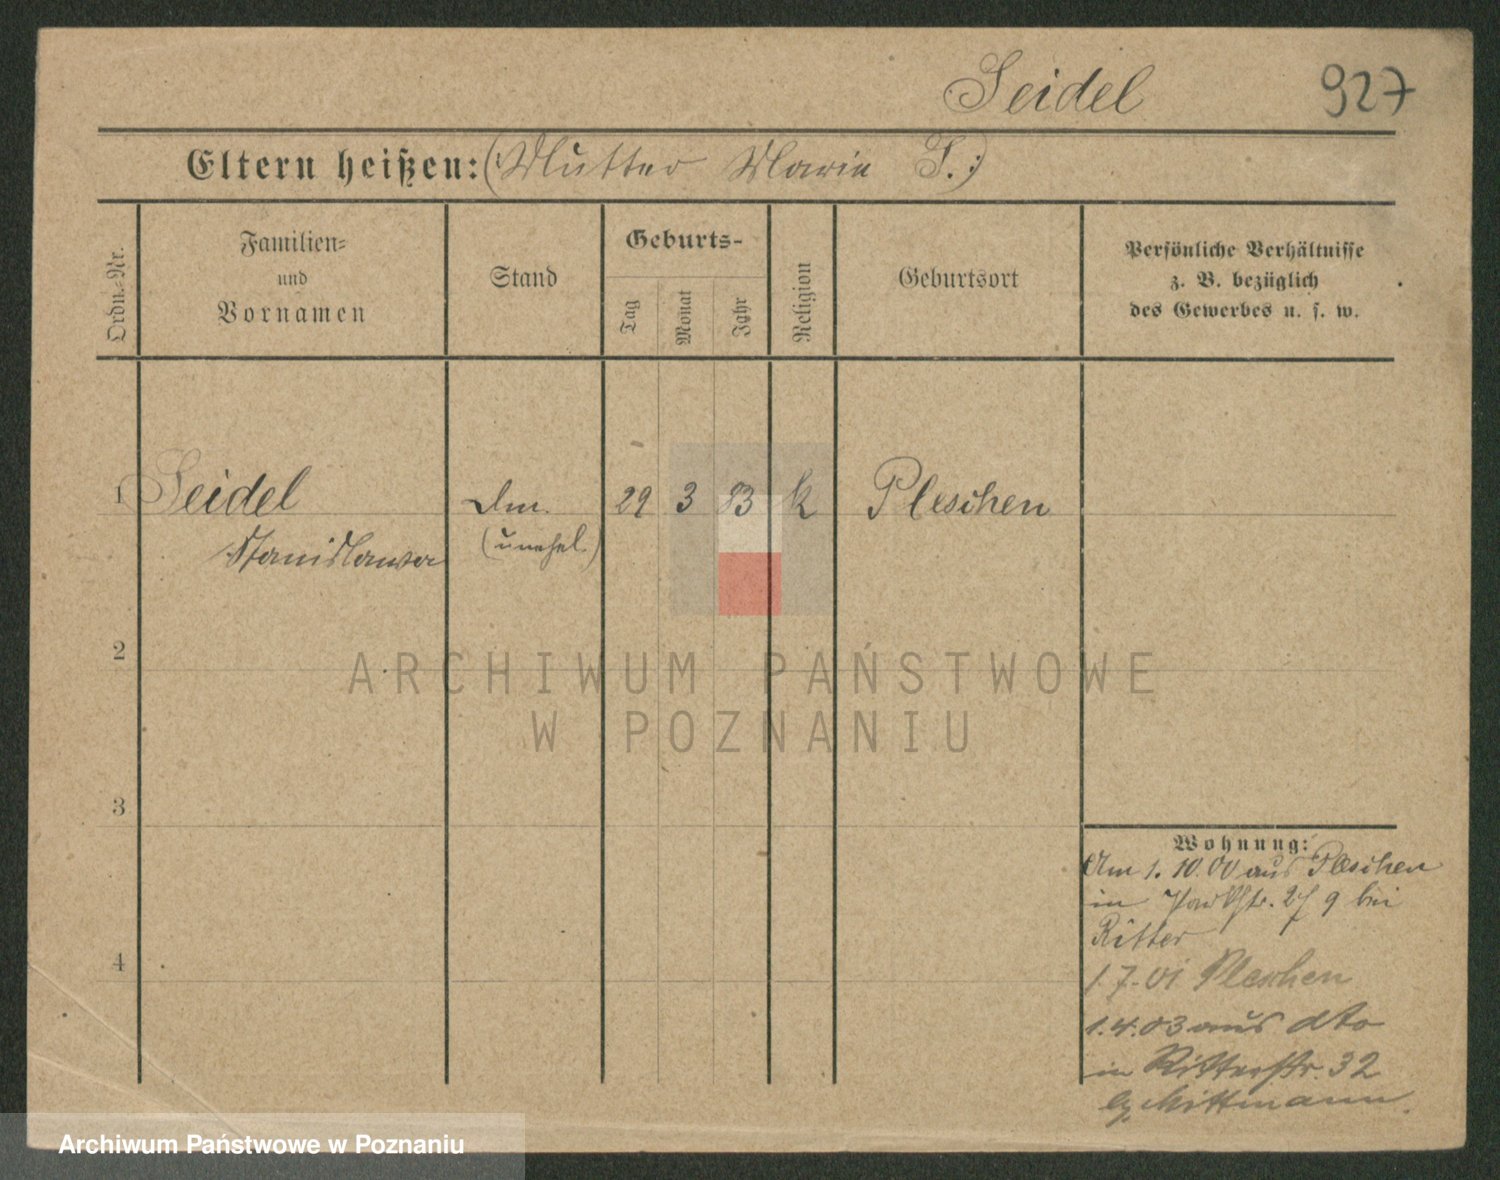 Seidel 927
Eltern heißen: (: Mutter Marie S. :)
Ordn.-Nr.
Familien-
und
Vornamen
Stand
Geburts-
Tag
Monat
Jahr
Religion
Geburtsort
Persönliche Verhältnisse
z. B. bezüglich
des Gewerbes u. s. w.
1 Seidel Dm. 29 3 83 k Pleschen
Stanislawa (unehel.)
2
ARCHIWUM PAŃSTWOWE
W POZNANIU
3
Wohnung:
Am 1. 10. 00 aus Pleschen
in Parkstr. 9 bei
Ritter
1.7.01 Pleschen
4
1.4.03 aus dto
in Ritterstr. 32
Mittmann.
Archiwum Państwowe w Poznaniu